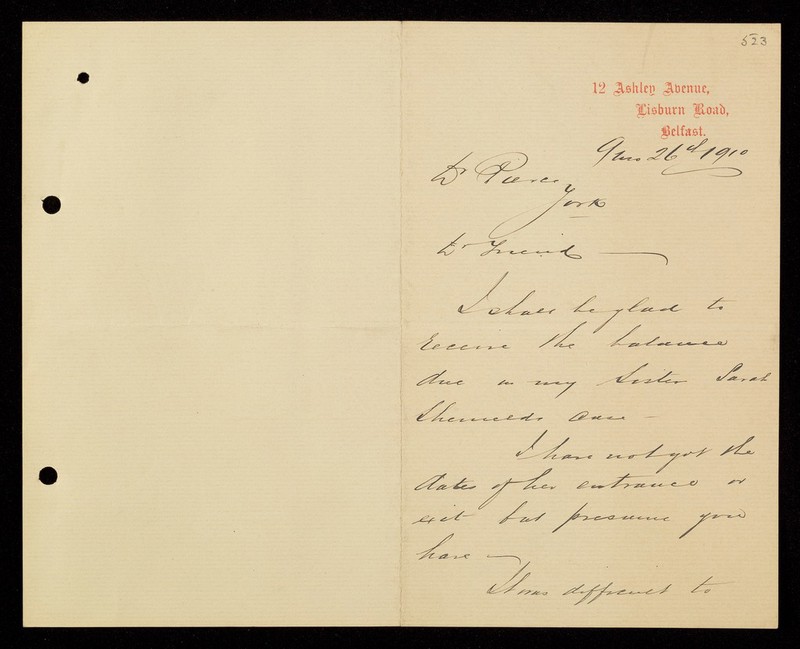 523
12 Ashley Avenue,
Lisburn Road,
Belfast.
26th 1910
Dr Pierce
York
Dr Friend —
I shall be glad to
receive the balance
due in my Sister Sarah
case —
I have not got the
dates of her entrance or
exit but presume you
have —
It was difficult to